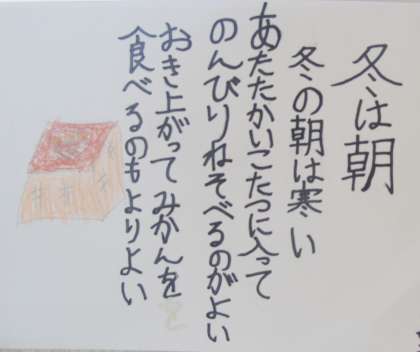 冬は朝
冬の朝は寒い
あたたかいこたつに入って
のんびりねそべるのがよい
おき上がってみかんを
食べるのもよりよい